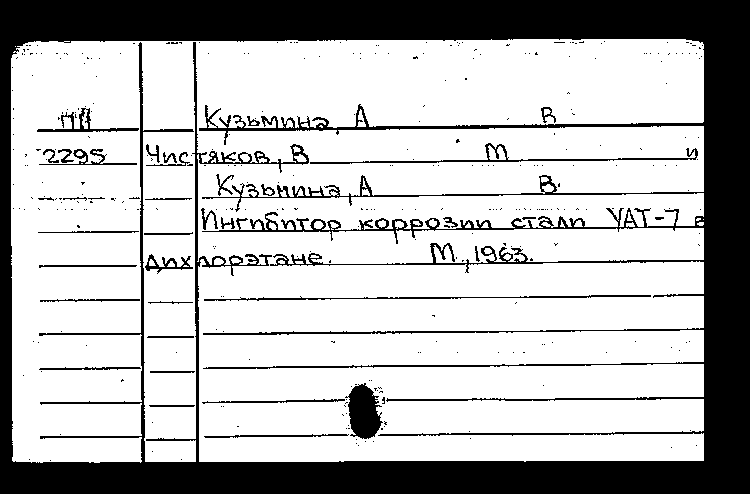 Кузьмина, А В
2295 Чистяков, В М и
Кузьмина, А В.
Ингибитор коррозии стали УАТ-7 в
дихлорэтане. М., 1963.